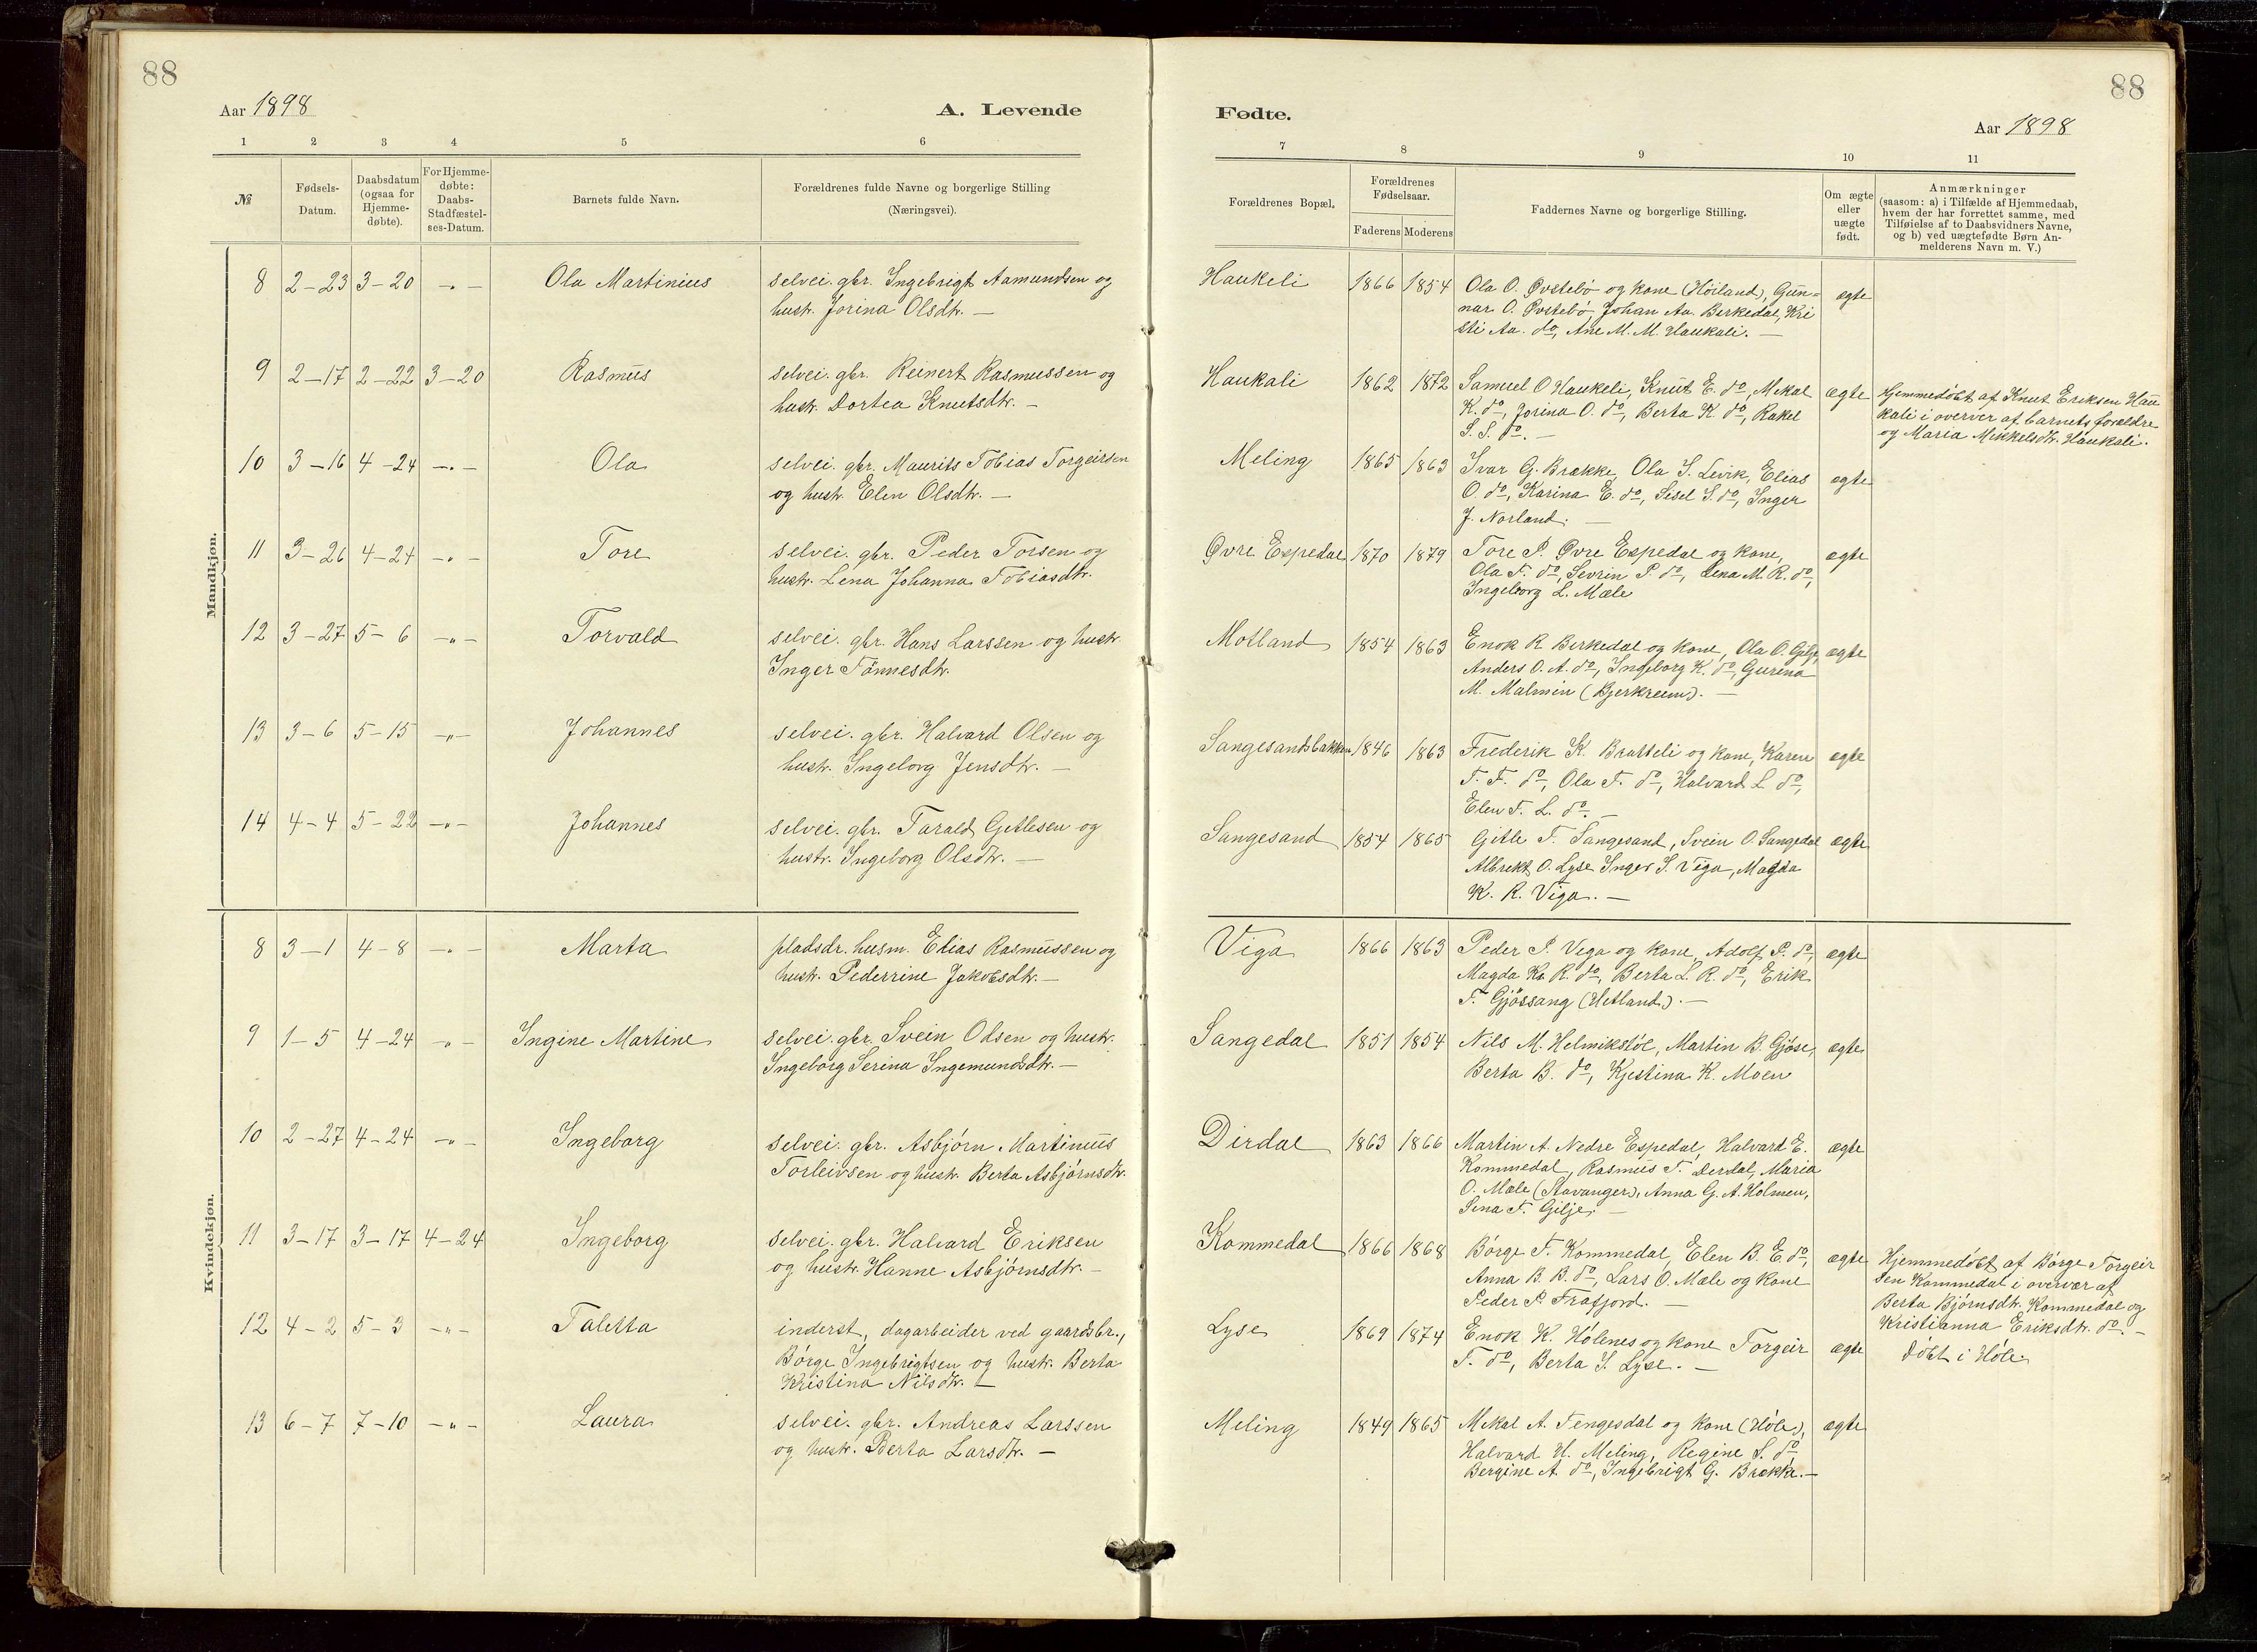 88
Aar 1898
A. Levende
1 2 3 4 5 6
№
Fødsels-
Datum.
Daabsdatum
(ogsaa for
Hjemme-
døbte).
For Hjemme-
døbte:
Daabs-
Stadfæstel-
ses-Datum.
Barnets fulde Navn.
Forældrenes fulde Navne og borgerlige Stilling
(Næringsvei).
Mandkjøn.
8 2-23 3-20 -"- Ola Martinius selvei. gbr. Ingebrigt Aamundsen og
hustr. Jorina Olsdtr. —
9 2-17 2-22 3-20 Rasmus selvei. gbr. Reinert Rasmussen og
hustr. Dortea Knutsdtr. —
10 3-16 4-24 -"- Ola selvei. gbr. Maurits Tobias Torgeirsen
og hustr. Elen Olsdtr. —
11 3-26 4-24 -"- Tore selvei. gbr. Peder Torsen og
hustr. Lena Johanna Tobiasdtr.
12 3-27 5-6 -"- Torvald selvei. gbr. Hans Larssen og hustr.
Inger Tønnesdtr.
13 3-6 5-15 -"- Johannes selvei. gbr. Halvard Olsen og
hustr. Ingeborg Jensdtr. —
14 4-4 5-22 -"- Johannes selvei. gbr. Tarald Gjetlesen og
hustr. Ingeborg Olsdtr. —
Kvindekjøn.
8 3-1 4-8 -"- Marta pladsdr. husm. Elias Rasmussen og
hustr. Pederrine Jakobsdtr. —
9 1-5 4-24 -"- Ingine Martine selvei. gbr. Svein Olsen og hustr.
Ingeborg Serina Ingemundsdtr. —
10 2-27 4-24 -"- Ingeborg selvei. gbr. Asbjørn Martinius
Torleivsen og hustr. Berta Asbjørnsdtr.
11 3-17 3-17 4-24 Ingeborg selvei. gbr. Halvard Eriksen
og hustr. Hanne Asbjørnsdtr. —
12 4-2 5-3 -"- Taletta inderst, dagarbeider ved gaardsbr.,
Børge Ingebrigtsen og hustr. Berta
Kristina Nilsdtr. —
13 6-7 7-10 -"- Laura selvei. gbr. Andreas Larssen
og hustr. Berta Larsdtr. —
88
Fødte.
Aar 1898
7 8 9 10 11
Forældrenes Bopæl.
Forældrenes
Fødselsaar.
Faderens Moderens
Faddernes Navne og borgerlige Stilling.
Om ægte
eller
uægte
født.
Anmærkninger
(saasom: a) i Tilfælde af Hjemmedaab,
hvem der har forrettet samme, med
Tilføielse af to Daabsvidners Navne,
og b) ved uægtefødte Børn An-
melderens Navn m. V.)
Haukeli 1866 1854 Ola O. Øvstebø og kone (Høiland), Gun=
nar O. Øvstebø, Johan Aa. Birkedal, Kri
sti Aa. do, Ane M. M. Haukali. — ægte
Haukali 1862 1872 Samuel O Haukeli, Knut E. do, Mikal
K. do, Jorina O. do, Berta K. do, Rakel
S. S. do. — ægte
Hjemmedøbt af Knut Eriksen Hau
kali i overver af barnets forældre
og Maria Mikkelsdtr. Haukali.
Meling 1865 1863 Ivar G. Brække, Ola S. Levik, Elias
O. do, Karina E. do, Sisel S. do, Inger
J. Norland. — ægte
Øvre Espedal 1870 1879 Tore P. Øvre Espedal og kone,
Ola T. do, Sevrin P. do, Lena M. R. do,
Ingeborg L. Mæle ægte
Motland 1854 1863 Enok R Birkedal og kone, Ola O. Gilje,
Anders O. A. do, Ingeborg K. do, Gurina
M. Malmin (Bjerkreim). — ægte
Sangesandsbakken 1846 1863 Frederik K. Bratteli og kone, Karen
T. F. do, Ola F. do, Halvard L. do,
Elen F. L. do. — ægte
Sangesand 1854 1865 Gitle T. Sangesand, Svein O. Sangedal
Albrekt O. Lyse Inger S. Viga, Magda
K. R. Viga. — ægte
Viga 1866 1863 Peder P. Vega og kone, Adolf P. do,
Magda K. R. do, Berta L. R. do, Erik
T. Gjøssang (Hetland). — ægte
Sangedal 1851 1854 Nils M. Helmikstøl, Martin B. Gjøse,
Berta B. do, Kjestina K. Moen ægte
Dirdal 1863 1866 Martin A. Nedre Espedal, Halvard E.
Kommedal, Rasmus T. Derdal, Maria
O. Mæle (Stavanger), Anna G. A. Holmen,
Sina T. Gilje. — ægte
Kommedal 1866 1868 Børge T. Kommedal, Elen B. E. do,
Anna B. B. do, Lars O. Mæle og kone
Peder P. Frafjord. — ægte
Hjemmedøbt af Børge Torgeir
sen Kommedal i overvær af
Berta Bjørnsdtr. Kommedal og
Kristianna Eriksdtr. do. —
Lyse 1869 1874 Enok K. Hølenes og kone Torgeir
T. do, Berta S. Lyse. — ægte
døbt i Høle.
Meling 1849 1865 Mikal A. Tengesdal og kone (Høle),
Halvard H. Meling, Regine S. do
Bergine A. do, Ingebrigt G. Brække. — ægte